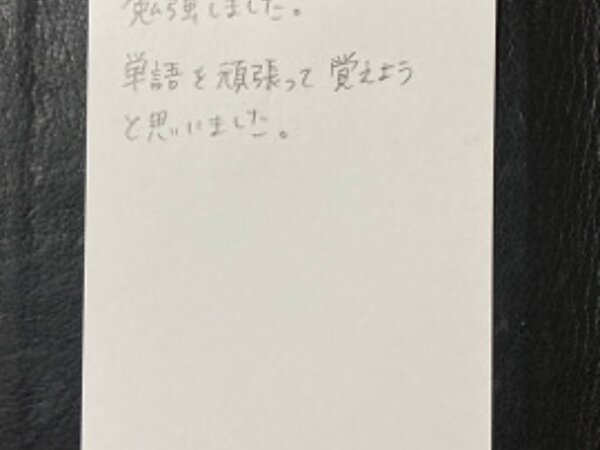 勉強しました。
単語を頑張って覚えよう
と思いました。